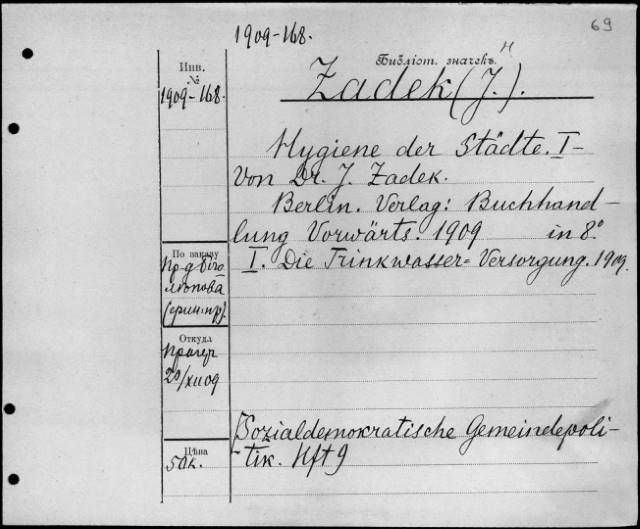 69
1909-168.
Инв.
№
1909-168.
Библіот. значекъ
Zadek (J.).
Hygiene der Städte. I-
Von Dr. J. Zadek.
Berlin. Verlag: Buchhand-
lung Vorwärts. 1909 in 8°
I. Die Trinkwasser-Versorgung. 1909.
По заказу
Откуда
20/XII 09
Цѣна
50к.
[Sozialdemokratische Gemeindepoli-
tik. Hft 9